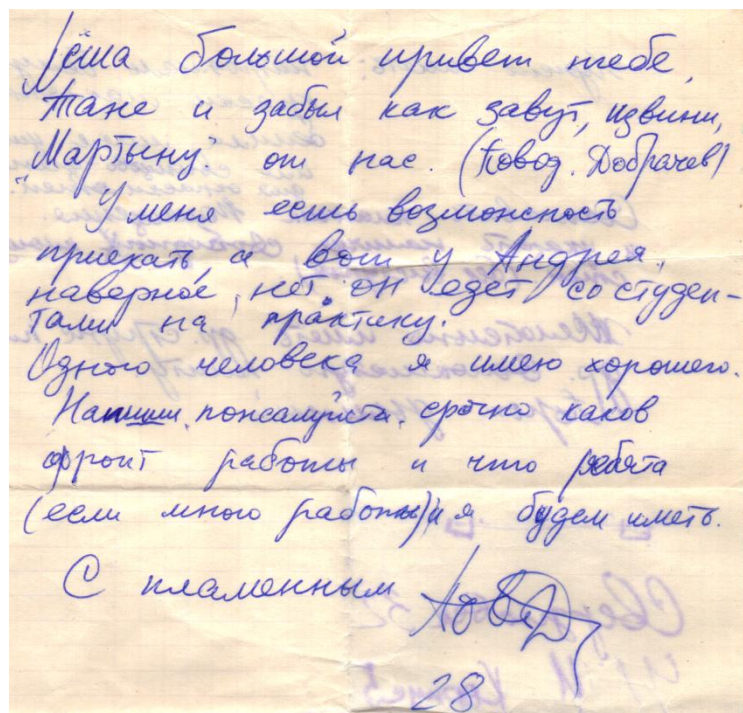 Лёша большой привет тебе,
Тане и забыл как завут, извини,
"Мартыну" от нас. (Повод. Добрачев)
У меня есть возможность
приехать, а вот у Андрея,
наверное, нет он едет со студен-
тами на практику.
Одного человека я имею хорошего.
Напиши, пожалуйста, срочно каков
фронт работы и что ребята
(если много работы) и я будем иметь.
С пламенным
28